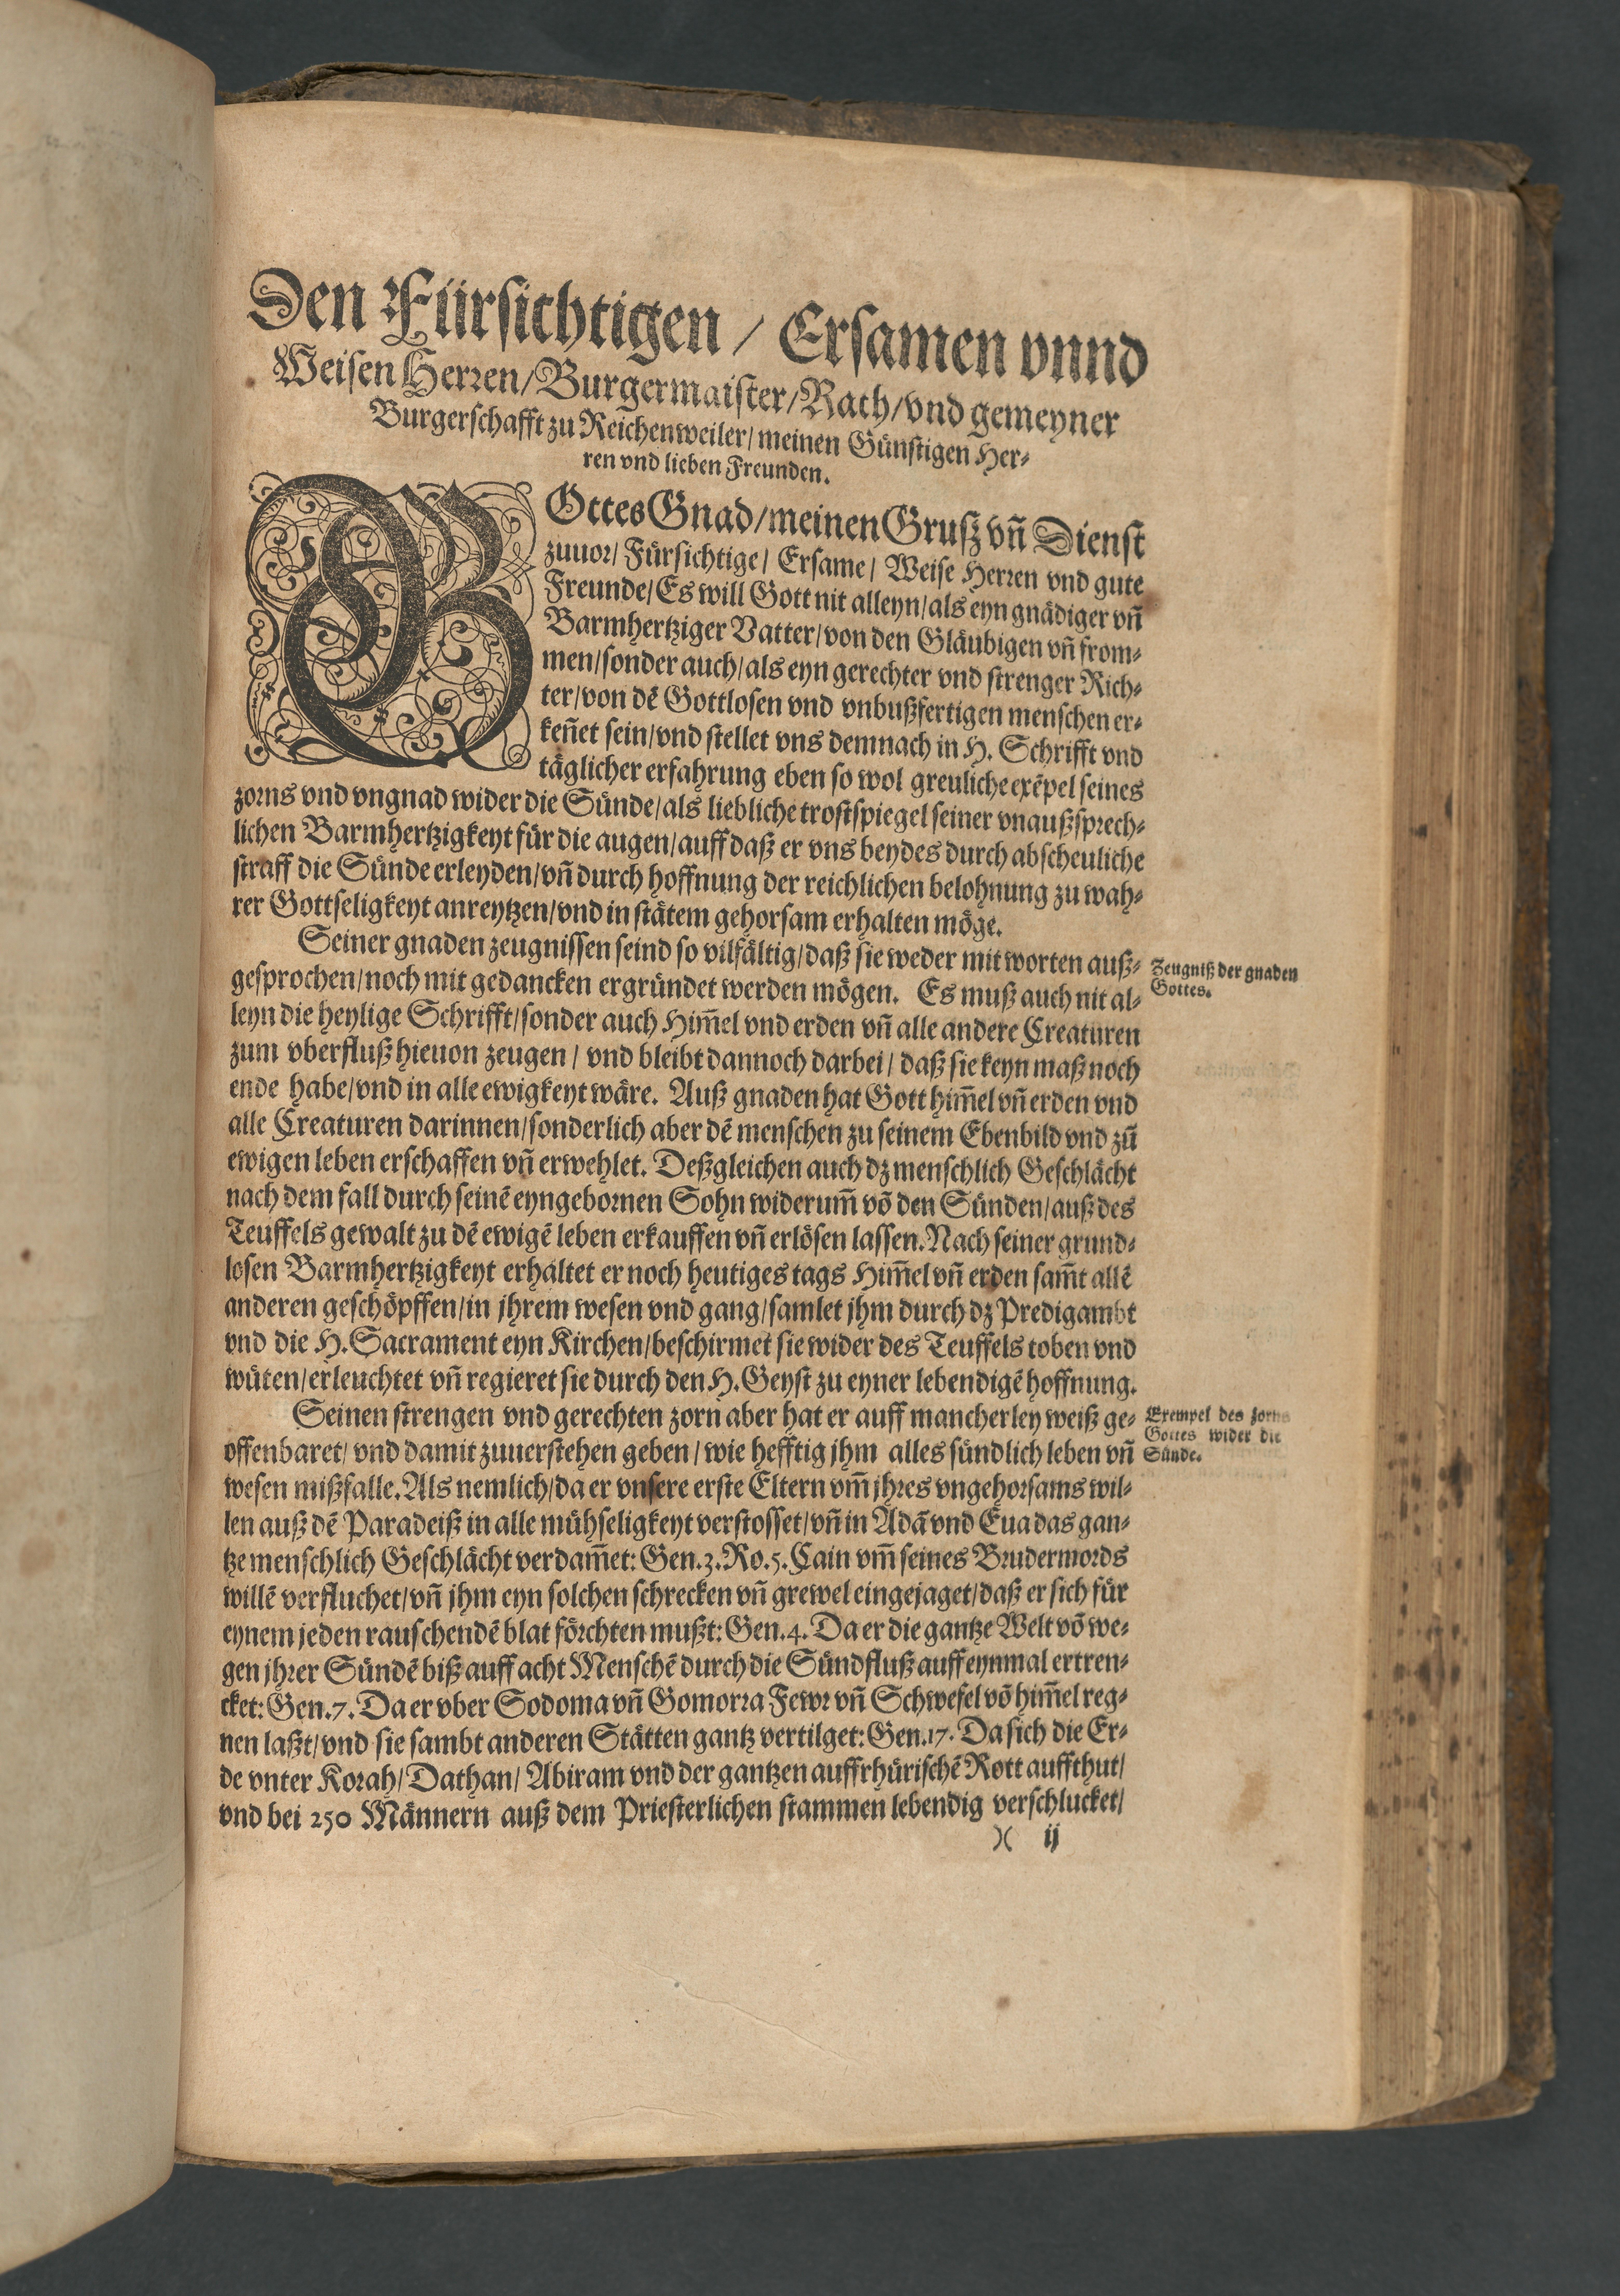 Den Fürsichtigen / Ersamen vnnd
Weisen Herren / Burgermaister / Rath / vnd gemeyner
Burgerschafft zu Reichenweiler / meinen Günstigen Her⸗
ren vnd lieben Freunden.
GOttes Gnad / meinen Gruß vñ Dienst
zuuor / Fürsichtige / Ersame / Weise Herren vnd gute
Freunde / Es will Gott nit alleyn / als eyn gnädiger vñ
Barmhertziger Vatter / von den Gläubigen vñ from⸗
men / sonder auch / als eyn gerechter vnd strenger Rich⸗
ter / von dē Gottlosen vnd vnbußfertigen menschen er⸗
keñet sein / vnd stellet vns demnach in H. Schrifft vnd
täglicher erfahrung eben so wol greuliche exēpel seines
zorns vnd vngnad wider die Sünde / als liebliche trostspiegel seiner vnaußsprech⸗
lichen Barmhertzigkeyt für die augen / auff daß er vns beydes durch abscheuliche
straff die Sünde erleyden / vñ durch hoffnung der reichlichen belohnung zu wah⸗
rer Gottseligkeyt anreytzen / vnd in stätem gehorsam erhalten möge.
Seiner gnaden zeugnissen seind so vilfältig / daß sie weder mit worten auß⸗
Zeugniß der gnaden
Gottes.
gesprochen / noch mit gedancken ergründet werden mögen. Es muß auch nit al⸗
leyn die heylige Schrifft / sonder auch Him̄el vnd erden vñ alle andere Creaturen
zum vberfluß hieuon zeugen / vnd bleibt dannoch darbei / daß sie keyn maß noch
ende habe / vnd in alle ewigkeyt wäre. Auß gnaden hat Gott him̄el vñ erden vnd
alle Creaturen darinnen / sonderlich aber dē menschen zu seinem Ebenbild vnd zū
ewigen leben erschaffen vñ erwehlet. Deßgleichen auch dz menschlich Geschlächt
nach dem fall durch seinē eyngebornen Sohn widerum̄ võ den Sünden / auß des
Teuffels gewalt zu dē ewigē leben erkauffen vñ erlösen lassen. Nach seiner grund⸗
losen Barmhertzigkeyt erhaltet er noch heutiges tags Him̄el vñ erden sam̄t allē
anderen geschöpffen / in jhrem wesen vnd gang / samlet jhm durch dz Predigambt
vnd die H. Sacrament eyn Kirchen / beschirmet sie wider des Teuffels toben vnd
wüten / erleuchtet vñ regieret sie durch den H. Geyst zu eyner lebendigē hoffnung.
Seinen strengen vnd gerechten zorn aber hat er auff mancherley weiß ge⸗
Exempel des zorns
Gottes wider die
Sünde.
offenbaret / vnd damit zuuerstehen geben / wie hefftig jhm alles sündlich leben vñ
wesen mißfalle. Als nemlich / da er vnsere erste Eltern vm̄ jhres vngehorsams wil⸗
len auß dē Paradeiß in alle mühseligkeyt verstosset / vñ in Adā vnd Eua das gan⸗
tze menschlich Geschlächt verdam̄et: Gen. 3. Ro. 5. Cain vm̄ seines Brudermords
willē verfluchet / vñ jhm eyn solchen schrecken vñ grewel eingejaget / daß er sich für
eynem jeden rauschendē blat förchten mußt: Gen. 4. Da er die gantze Welt võ we⸗
gen jhrer Sündē biß auff acht Menschē durch die Sündfluß auff eynmal ertren⸗
cket: Gen. 7. Da er vber Sodoma vñ Gomorra Fewr vñ Schwefel võ him̄el reg⸗
nen laßt / vnd sie sambt anderen Stätten gantz vertilget: Gen. 17. Da sich die Er⸗
de vnter Korah / Dathan / Abiram vnd der gantzen auffrhürischē Rott auffthut /
vnd bei 250 Männern auß dem Priesterlichen stammen lebendig verschlucket /
)( ij